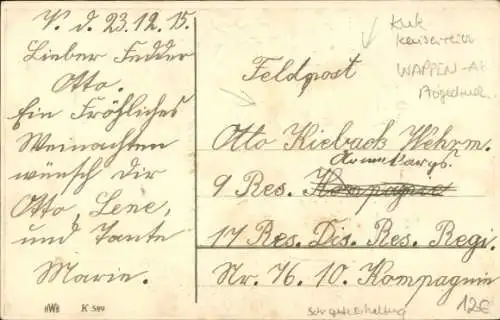 V. d. 23.12.15.
Lieber Fedder
Otto.
Ein Fröhliches
Weinachten
wünsch dir
Otto, Lene,
und Tante
Marie.
HWB K 599
Feldpost
Otto Kieback Wehrm.
9 Res. Kompagnie
17 Res. Dis. Res. Regi.
Nr. 76. 10. Kompagnie
KuK
Kaiserreich
WAPPEN-AK
Prägedruck
Sehr gute Erhaltung
12€